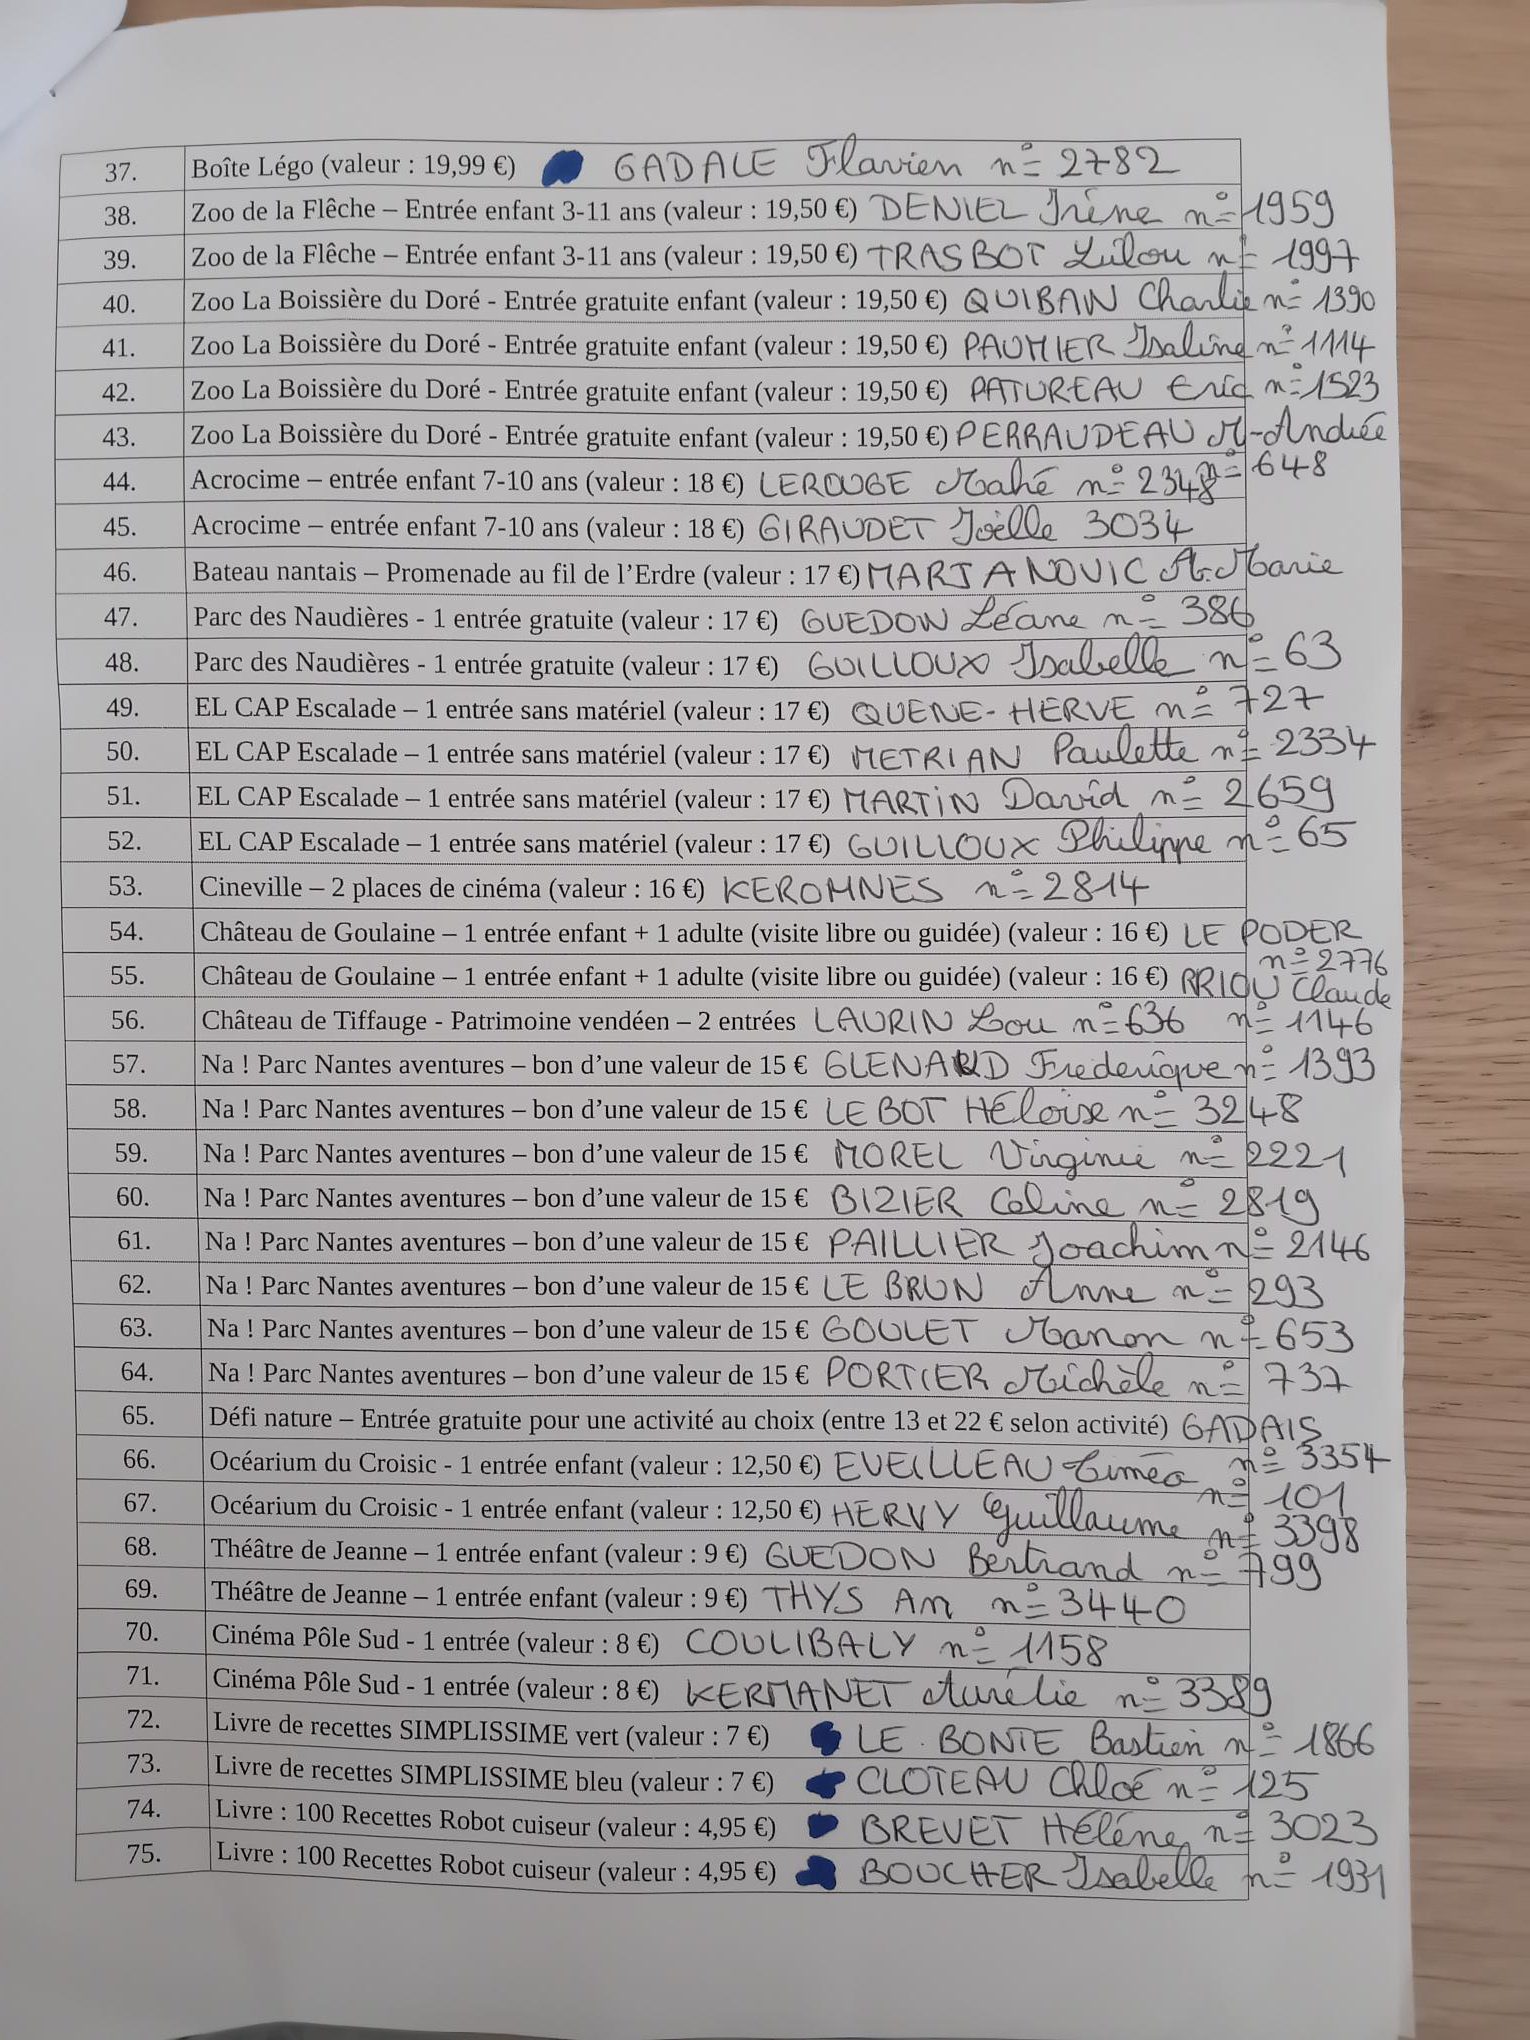 37. Boîte Légo (valeur : 19,99 €) GADALE Flavien n° 2782
38. Zoo de la Flêche – Entrée enfant 3-11 ans (valeur : 19,50 €) DENIEL Irène n° 1959
39. Zoo de la Flêche – Entrée enfant 3-11 ans (valeur : 19,50 €) TRASBOT Lilou n° 1997
40. Zoo La Boissière du Doré - Entrée gratuite enfant (valeur : 19,50 €) QUIBAN Charlie n° 1390
41. Zoo La Boissière du Doré - Entrée gratuite enfant (valeur : 19,50 €) PAUMIER Isaline n° 1114
42. Zoo La Boissière du Doré - Entrée gratuite enfant (valeur : 19,50 €) PATUREAU Eric n° 1523
43. Zoo La Boissière du Doré - Entrée gratuite enfant (valeur : 19,50 €) PERRAUDEAU M-Andrée
n° 648
44. Acrocime – entrée enfant 7-10 ans (valeur : 18 €) LEROUGE Mahé n° 2348
45. Acrocime – entrée enfant 7-10 ans (valeur : 18 €) GIRAUDET Joëlle 3034
46. Bateau nantais – Promenade au fil de l’Erdre (valeur : 17 €) MARJANOVIC A.Marie
47. Parc des Naudières - 1 entrée gratuite (valeur : 17 €) GUEDON Léane n° 386
48. Parc des Naudières - 1 entrée gratuite (valeur : 17 €) GUILLOUX Isabelle n° 63
49. EL CAP Escalade – 1 entrée sans matériel (valeur : 17 €) QUENE-HERVE n° 727
50. EL CAP Escalade – 1 entrée sans matériel (valeur : 17 €) METRIAN Paulette n° 2334
51. EL CAP Escalade – 1 entrée sans matériel (valeur : 17 €) MARTIN David n° 2659
52. EL CAP Escalade – 1 entrée sans matériel (valeur : 17 €) GUILLOUX Philippe n° 65
53. Cineville – 2 places de cinéma (valeur : 16 €) KEROMNES n° 2814
54. Château de Goulaine – 1 entrée enfant + 1 adulte (visite libre ou guidée) (valeur : 16 €) LE PODER
n° 2776
55. Château de Goulaine – 1 entrée enfant + 1 adulte (visite libre ou guidée) (valeur : 16 €) RRIOU Claude
n° 1146
56. Château de Tiffauge - Patrimoine vendéen – 2 entrées LAURIN Lou n° 636
57. Na ! Parc Nantes aventures – bon d’une valeur de 15 € GLENARD Frederique n° 1393
58. Na ! Parc Nantes aventures – bon d’une valeur de 15 € LE BOT Héloïse n° 3248
59. Na ! Parc Nantes aventures – bon d’une valeur de 15 € MOREL Virginie n° 2221
60. Na ! Parc Nantes aventures – bon d’une valeur de 15 € BIZIER Celine n° 2819
61. Na ! Parc Nantes aventures – bon d’une valeur de 15 € PAILLIER Joachim n° 2146
62. Na ! Parc Nantes aventures – bon d’une valeur de 15 € LE BRUN Anne n° 293
63. Na ! Parc Nantes aventures – bon d’une valeur de 15 € GOULET Manon n° 653
64. Na ! Parc Nantes aventures – bon d’une valeur de 15 € PORTIER Michèle n° 737
65. Défi nature – Entrée gratuite pour une activité au choix (entre 13 et 22 € selon activité) GADAIS
n° 3354
66. Océarium du Croisic - 1 entrée enfant (valeur : 12,50 €) EVEILLEAU Timéo
n° 101
67. Océarium du Croisic - 1 entrée enfant (valeur : 12,50 €) HERVY Guillaume n° 3398
68. Théâtre de Jeanne – 1 entrée enfant (valeur : 9 €) GUEDON Bertrand n° 799
69. Théâtre de Jeanne – 1 entrée enfant (valeur : 9 €) THYS An n° 3440
70. Cinéma Pôle Sud - 1 entrée (valeur : 8 €) COULIBALY n° 1158
71. Cinéma Pôle Sud - 1 entrée (valeur : 8 €) KERMANET Aurélie n° 3389
72. Livre de recettes SIMPLISSIME vert (valeur : 7 €) LE BONTE Bastien n° 1866
73. Livre de recettes SIMPLISSIME bleu (valeur : 7 €) CLOTEAU Chloé n° 125
74. Livre : 100 Recettes Robot cuiseur (valeur : 4,95 €) BREVET Hélène n° 3023
75. Livre : 100 Recettes Robot cuiseur (valeur : 4,95 €) BOUCHER Isabelle n° 1931